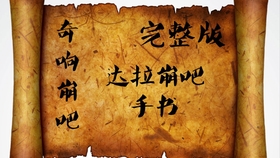 奇响崩吧
完整版
达拉崩吧
手书